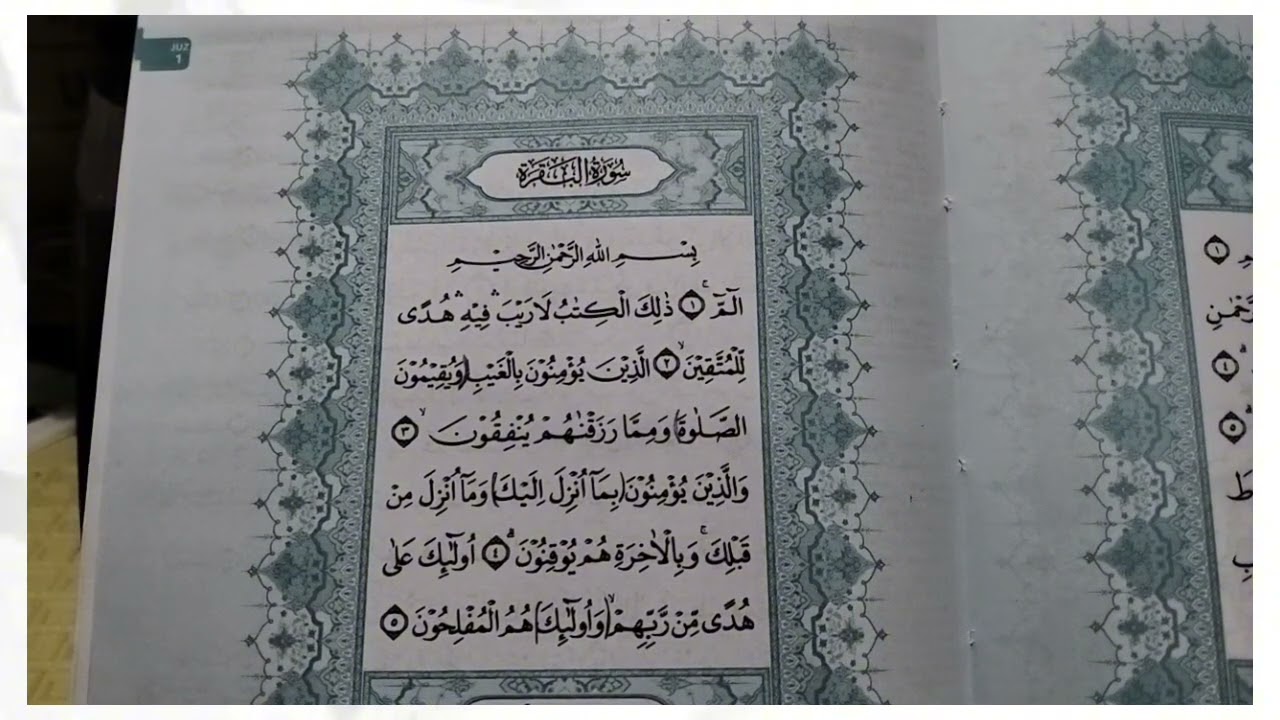 JUZ
1
سُوْرَةُ الْبَقَرَةِ
بِسْمِ اللّٰهِ الرَّحْمٰنِ الرَّحِيْمِ
الۤمّۤ ۚ ١ ذٰلِكَ الْكِتٰبُ لَا رَيْبَ ۛ فِيْهِ ۛ هُدًى
لِّلْمُتَّقِيْنَ ۙ ٢ الَّذِيْنَ يُؤْمِنُوْنَ بِالْغَيْبِ (وَيُقِيْمُوْنَ
الصَّلٰوةَ) وَمِمَّا رَزَقْنٰهُمْ يُنْفِقُوْنَ ۙ ٣
وَالَّذِيْنَ يُؤْمِنُوْنَ (بِمَآ اُنْزِلَ اِلَيْكَ) وَمَآ اُنْزِلَ مِنْ
قَبْلِكَ ۚ وَبِالْاٰخِرَةِ هُمْ يُوْقِنُوْنَ ۗ ٤ اُولٰۤىِٕكَ عَلٰى
هُدًى مِّنْ رَّبِّهِمْ ۙ (وَاُولٰۤىِٕكَ) هُمُ الْمُفْلِحُوْنَ ٥
١
ـرَّحْمٰنِ
٤
٥